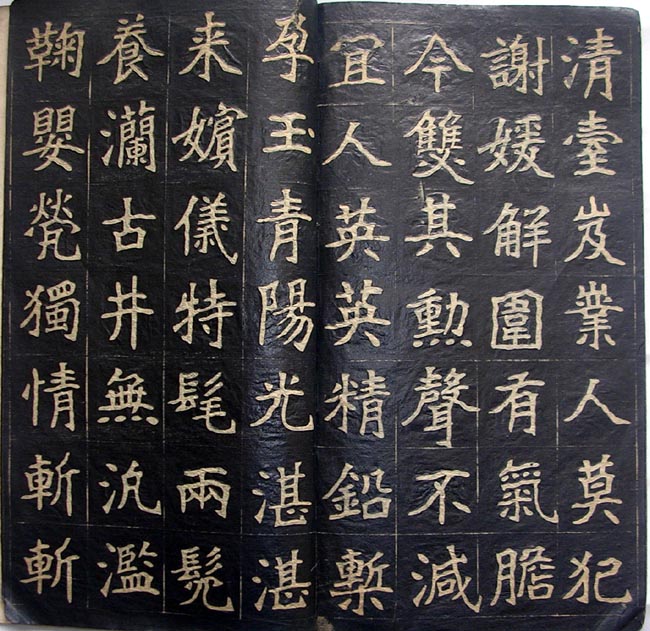 清臺岌業人莫犯
謝媛解圍有氣膽
今雙其勳聲不減
宜人英英精鉛槧
孕玉青陽光湛湛
来嬪儀特髦兩髧
養灡古井無汎濫
鞠嬰煢獨情斬斬